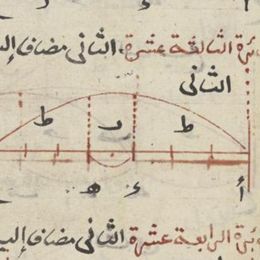 ئرة الثالثة عشرة الثانى مضاف إلي
الثانى
ط ر ط
أ ء ه
ئرة الرابعة عشرة الثانى مضاف إلي